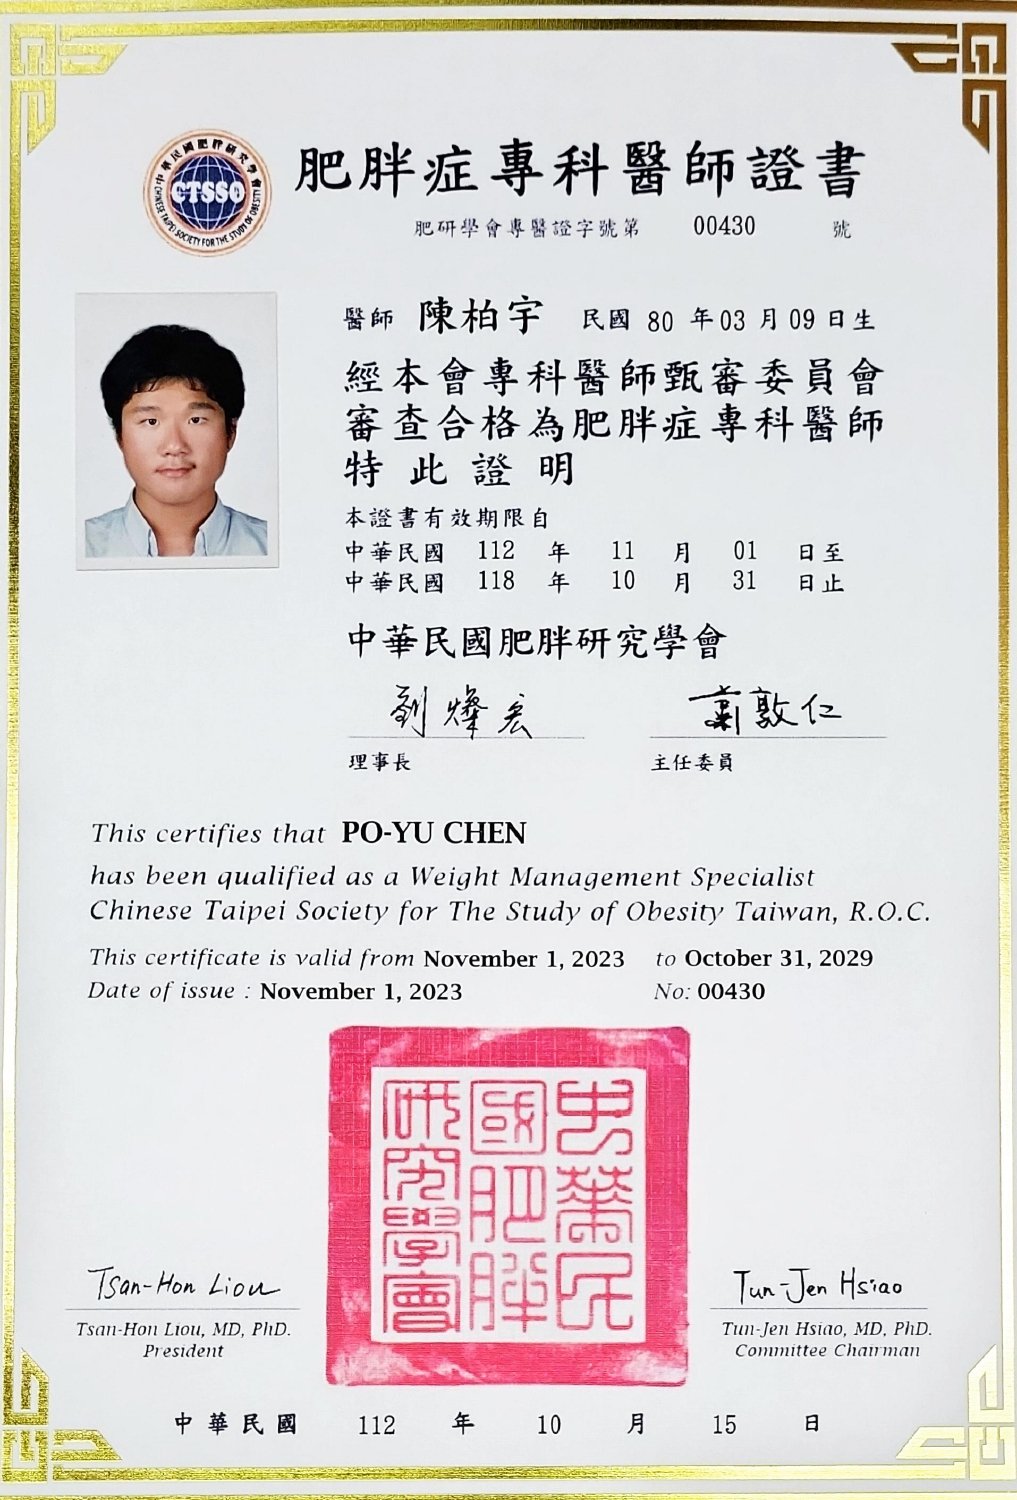 中華民國肥胖研究學會
CHINESE TAIPEI SOCIETY FOR THE STUDY OF OBESITY
CTSSO
肥胖症專科醫師證書
肥研學會專醫證字號第 00430 號
醫師 陳柏宇 民國 80 年 03 月 09 日生
經本會專科醫師甄審委員會
審查合格為肥胖症專科醫師
特此證明
本證書有效期限自
中華民國 112 年 11 月 01 日至
中華民國 118 年 10 月 31 日止
中華民國肥胖研究學會
劉燦宏 蕭敦仁
理事長 主任委員
This certifies that PO-YU CHEN
has been qualified as a Weight Management Specialist
Chinese Taipei Society for The Study of Obesity Taiwan, R.O.C.
This certificate is valid from November 1, 2023 to October 31, 2029
Date of issue : November 1, 2023 No: 00430
中華民
國肥胖
研究學會
Tsan-Hon Liou Tun-Jen Hsiao
Tsan-Hon Liou, MD, PhD. Tun-Jen Hsiao, MD, PhD.
President Committee Chairman
中華民國 112 年 10 月 15 日